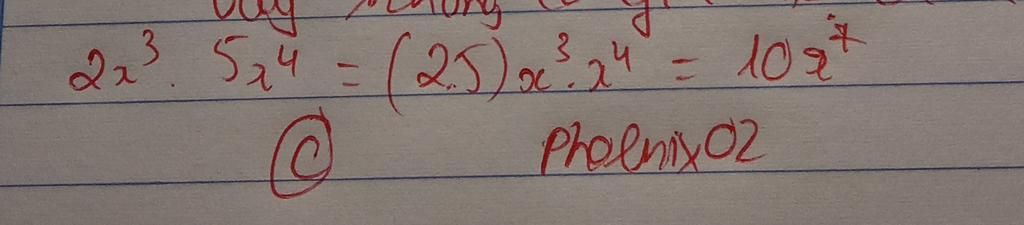 2x³ . 5x⁴ = (2.5)x³.x⁴ = 10x⁷
© Phoenix02